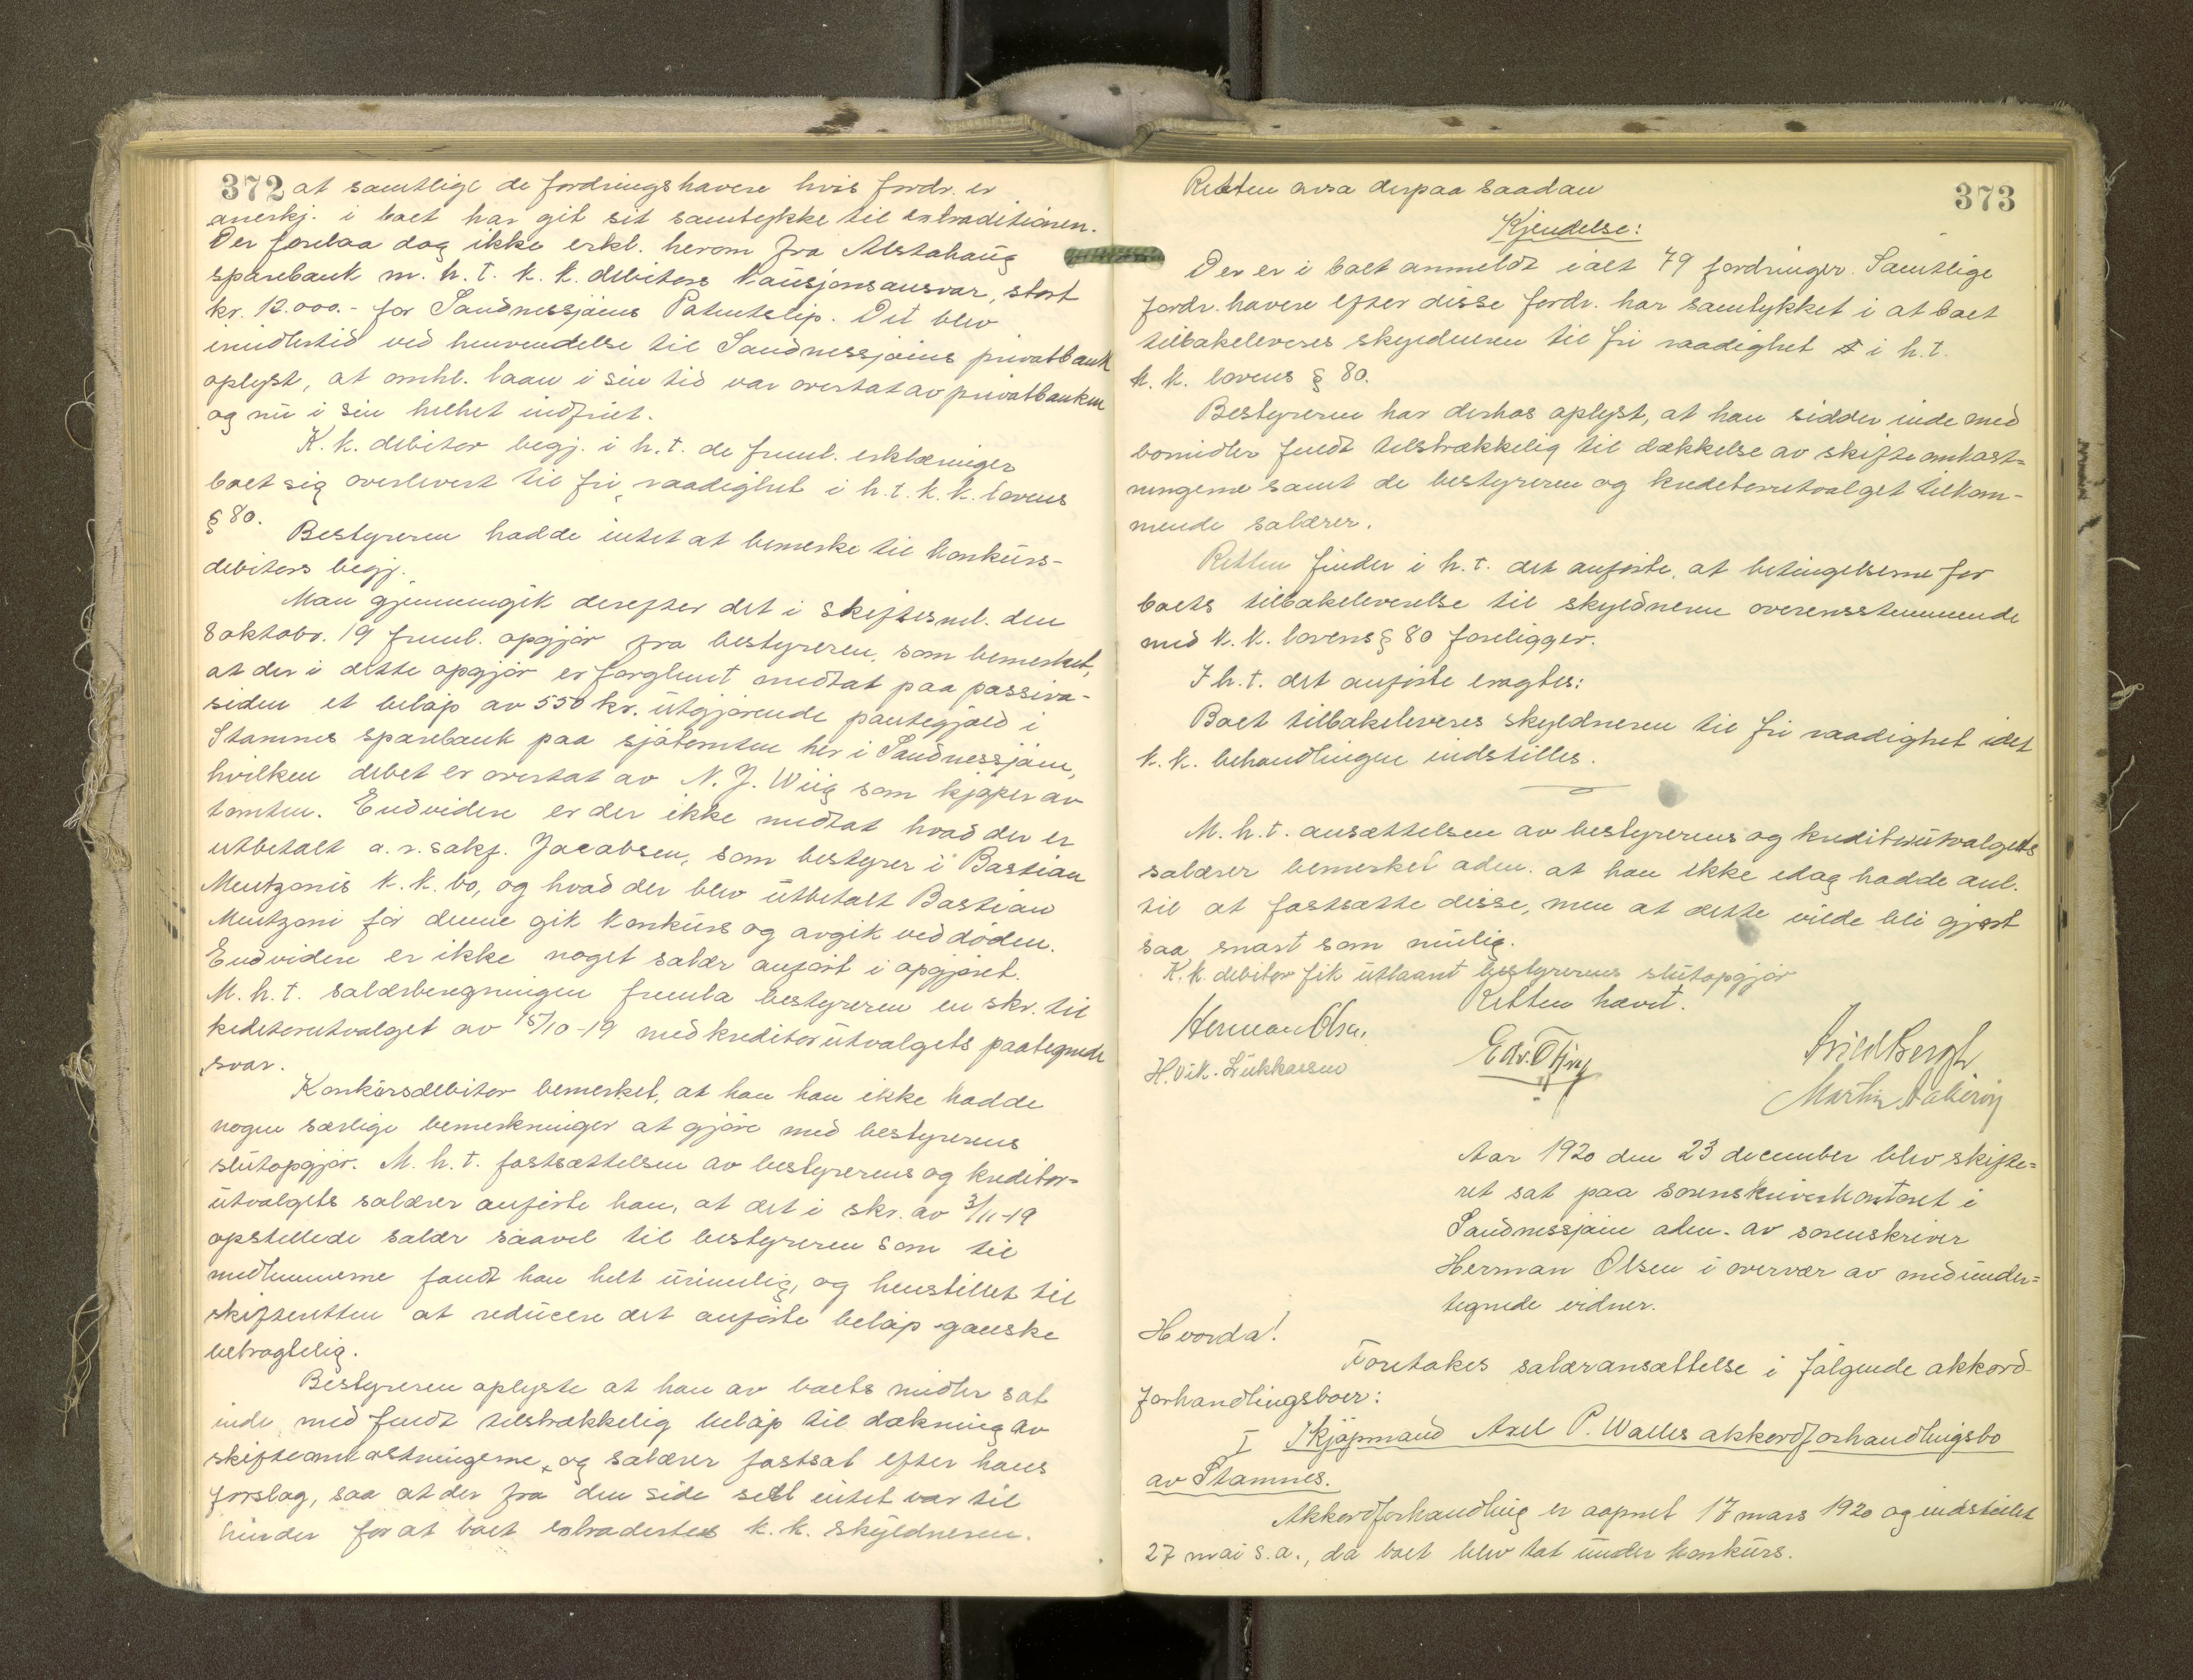 372 at samtlige de fordringshavere hvis fordr. er
anerkj. i boet har git sit samtykke til extraditionen.
Der forelaa dog ikke erkl. herom fra Alstahaug
sparebank m. h. t. k. k. debitors kausjonsansvar, stort
kr. 12.000.- for Sandnessjøens Patentslip. Det blev
imidlertid ved henvendelse til Sandnessjøens privatbank
oplyst, at omhl. laan i sin tid var overtat av privatbanken
og nu i sin helhet indfriet.
K. k. debitor begj. i h. t. de freml. erklæringer
boet sig overlevert til fri raadighet i h. t. k. k. lovens
§ 80.
Bestyreren hadde intet at bemerke til konkurs-
debitors begj.
Man gjennemgik derefter det i skiftesml. den
8 oktobr. 19 freml. opgjør fra bestyreren, som bemerket,
at der i dette opgjør er forglemt medtat paa passiva-
siden et beløp av 550 kr. utgjørende pantegjæld i
Stamnes sparebank paa sjøtomten her i Sandnessjøen,
hvilken debet er overtat av N. J. Wiig som kjøper av
tomten. Endvidere er der ikke medtat hvad der er
utbetalt o. r. sakf. Jacobsen, som bestyrer i Bastian
Mentzonis k. k. bo, og hvad der blev utbetalt Bastian
Mentzoni før denne gik konkurs og avgik ved døden.
Endvidere er ikke noget salær anført i opgjøret.
M. h. t. salærberegningen fremla bestyreren en skr. til
keditorutvalget av 15/10-19 med kreditorutvalgets paategnede
svar.
Konkursdebitor bemerket, at han han ikke hadde
nogen særlige bemerkninger at gjøre med bestyrerens
slutopgjør. M. h. t. fastsættelsen av bestyrerens og kreditor=
utvalgets salærer anførte han, at det i skr. av 3/11-19
opstillede salær saavel til bestyreren som til
medlemmerne fandt han helt urimelig, og henstillet til
skifteretten at reducere det anførte beløp ganske
betragtelig.
Bestyreren oplyste at han av boets midler sat
inde med fuldt tilstrækkelig beløp til dækning av
skifteomkostningerne og salærer fastsat efter hans
forslag, saa at der fra den side set intet var til
hinder for at boet extradertes k. k. skyldneren.
373
Retten avsa derpaa saadan
Kjendelse:
Der er i boet anmeldt ialt 79 fordringer. Samtlige
fordr. havere efter disse fordr. har samtykket i at boet
tilbakeleveres skyldneren til fri raadighet i h. t.
k. k. lovens § 80.
Bestyreren har derhos oplyst, at han sidder inde med
bomidler fuldt tilstrækkelig til dækkelse av skifteomkost=
ningerne samt de bestyreren og kreditorutvalget tilkom-
mende salærer.
Retten finder i h. t. det anførte, at betingelserne for
boets tilbakeleverelse til skyldneren overensstemmende
med k. k. lovens § 80 foreligger.
I h. t. det anførte eragtes:
Boet tilbakeleveres skyldneren til fri raadighet idet
k. k. behandlingen indstilles.
M. h. t. ansættelsen av bestyrerens og kreditorutvalgets
salærer bemerket adm. at han ikke idag hadde anl.
til at fastsætte disse, men at dette vilde bli gjort
saa snart som mulig.
K. k. debitor fik utlaant bestyrerens slutopgjør
Retten hævet.
Herman Olsen
H. Vik. Lukkassen
Arild Bergh
Martin
Aar 1920 den 23 december blev skifte=
ret sat paa sorenskriverkontoret i
Sandnessjøen adm. av sorenskriver
Herman Olsen i overvær av medunder=
tegnede vidner.
Hvorda!
Foretakes salæransættelse i følgende akkord-
forhandlingsboer:
I I kjøpmand Axel P. Walles akkordforhandlingsbo
av Stamnes.
Akkordforhandling er aapnet 17 mars 1920 og indstillet
27 mai s. a., da boet blev tat under konkurs.